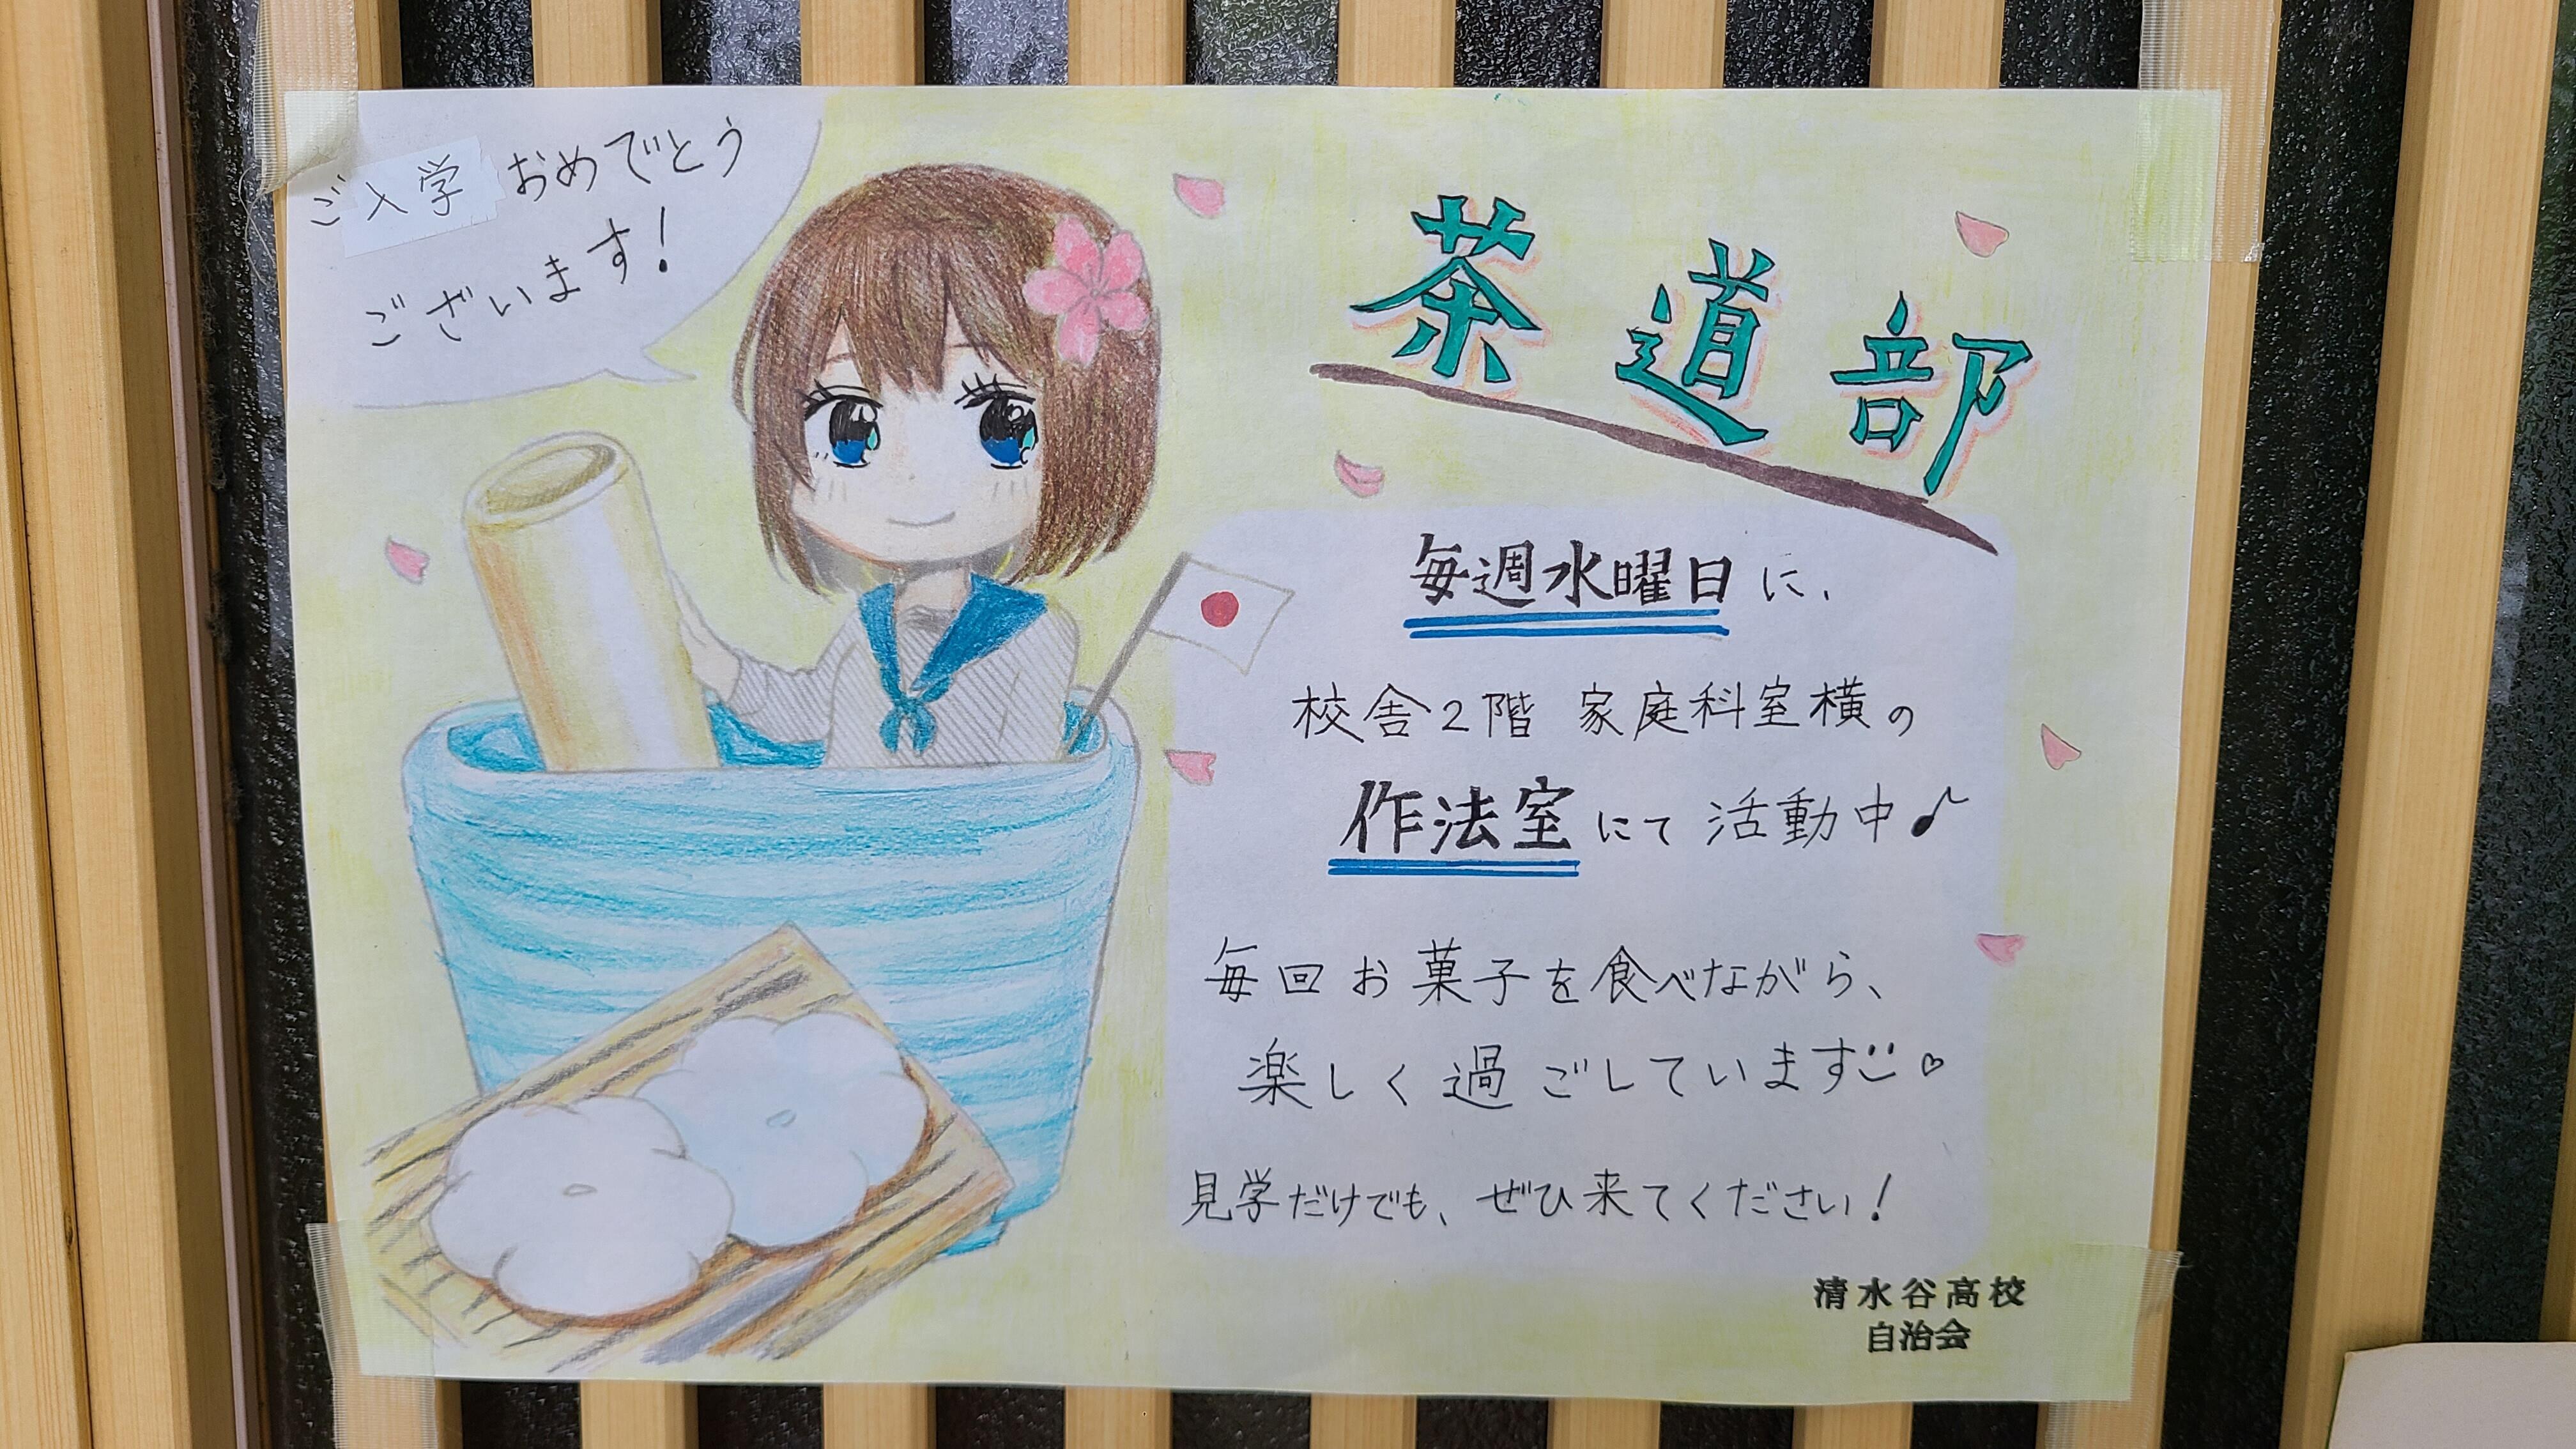 ご入学おめでとう
ございます!
茶道部
毎週水曜日に、
校舎2階 家庭科室横の
作法室にて活動中♪
毎回お菓子を食べながら、
楽しく過ごしています
見学だけでも、ぜひ来てください!
清水谷高校
自治会